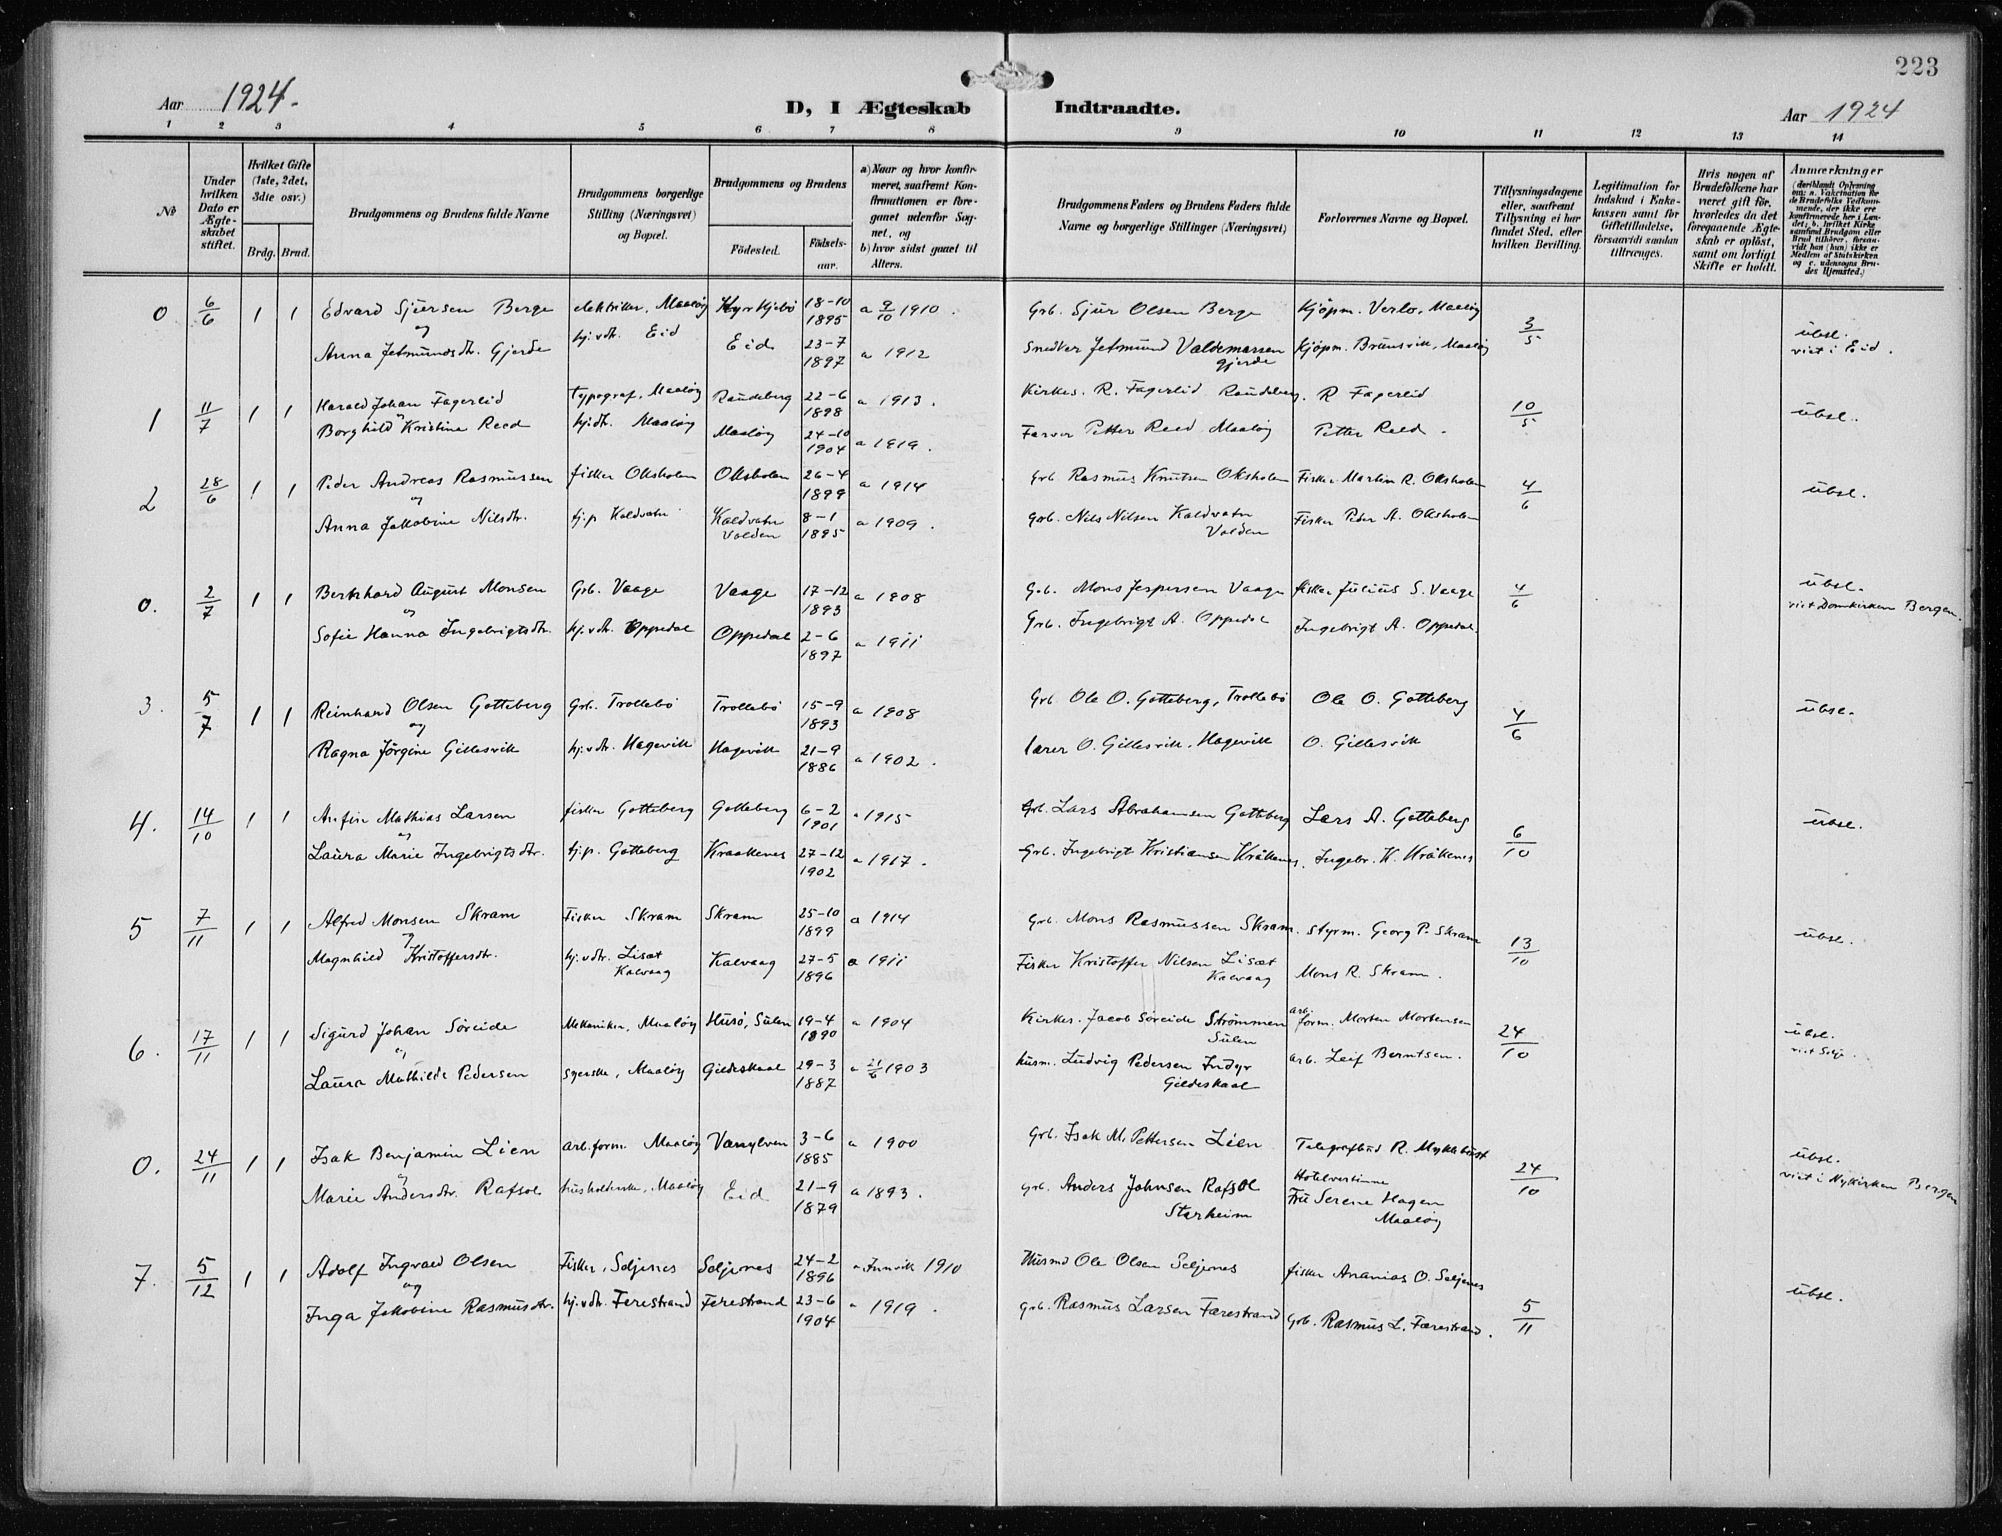 223
Aar 1924.
D, I Ægteskab Indtraadte.
Aar 1924
1 2 3 4 5 6 7 8 9 10 11 12 13 14
№
Under hvilken Dato er Ægteskabet stiftet.
Hvilket Gifte (1ste, 2det, 3die osv.)
Brdg. Brud.
Brudgommens og Brudens fulde Navne
Brudgommens borgerlige Stilling (Næringsvei) og Bopæl.
Brudgommens og Brudens
Fødested.
Fødselsaar.
a) Naar og hvor konfirmeret, saafremt Konfirmationen er foregaaet udenfor Sognet, og
b) hvor sidst gaaet til Alters.
Brudgommens Faders og Brudens Faders fulde Navne og borgerlige Stillinger (Næringsvei)
Forlovernes Navne og Bopæl.
Tillysningsdagene eller, saafremt Tillysning ei har fundet Sted, efter hvilken Bevilling.
Legitimation for Indskud i Enkekassen samt for Giftetilladelse, forsaavidt saadan tiltrænges.
Hvis nogen af Brudefolkene har været gift før, hvorledes da det foregaaende Ægteskab er opløst, samt om lovligt Skifte er holdt.
Anmærkninger
(deriblandt Oplysning om: a. Vakcination for de Brudefolks Vedkommende, der ikke ere konfirmerede her i Landet; b. hvilket Kirkesamfund Brudgom eller Brud tilhører, forsaavidt han (hun) ikke er Medlem af Statskirken og c. udensogns Brudes Hjemsted.)
0 6/6 1 1 Edvard Sjursen Berge elektriker, Maaløy Kyrkjebø 18-10 1895 a 9/10 1910. Grb. Sjur Olsen Berge Kjøpm. Verlo, Maaløy 3/5 ubsl.
og
Anna Jetmundsdtr. Gjerde hj.v.dtr. Eid Eid 23-7 1897 a 1912 Snedker Jetmund Valdemarsen Gjerde Kjøpm. Brunsvik, Maaløy viet i Eid.
1 11/7 1 1 Harald Johan Fagerlid Typograf, Maaløy Raudeberg 22-6 1898 a 1913. Kirkes. R. Fagerlid Raudeberg, R Fagerlid 10/5 ubsl.
Borghild Kristine Reed hj.dtr. Maaløy Maaløy 24-10 1904 a 1919. Farver Petter Reed Maaløy Petter Reed.
2 28/6 1 1 Peder Andreas Rasmussen fisker Oksholm Oksholm 26-4 1899 a 1914 Grb Rasmus Knutsen Oksholm Fisker Martin R. Oksholm 4/6 ubsl.
og
Anna Jakobine Nilsdtr. tj.p Kaldvatn Kaldvatn Volden 8-1 1895 a 1909. Grb. Nils Nilsen Kaldvatn Volden Fisker Peder A. Oksholm
0. 2/7 1 1 Bernhard August Monsen Grb. Vaage Vaage 17-12 1893 a 1908 Grb. Mons Jespersen Vaage fisker Julius S. Vaage 4/6 ubsl.
og
viet Domkirken Bergen.
Sofie Hanna Ingebrigtsdtr. hj.v.dtr. Oppedal Oppedal 2-6 1897 a 1911 Grb. Ingebrigt A. Oppedal Ingebrigt A. Oppedal.
3. 5/7 1 1 Reinhard Olsen Gotteberg Grb. Trollebø Trollebø 15-9 1893 a 1908 Grb Ole O. Gotteberg, Trollebø Ole O. Gotteberg 4/6 ubsl.
og
Ragna Jørgine Gillesvik hj.v.dtr. Hagevik Hagevik 21-9 1886 a 1902. lærer O. Gillesvik, Hagevik O. Gillesvik
4. 14/10 1 1 Anfin Mathias Larsen fisker Gotteberg Gotteberg 6-2 1901 a 1915 Grb. Lars Abrahamsen Gotteberg Lars A. Gotteberg 6/10 ubsl.
og
Laura Marie Ingebrigtsdtr. tj.p. Gotteberg Kraakenes 27-12 1902 a 1917. Grb. Ingebrigt Kristiansen Kråkenes. Ingebr. K. Kråkenes
5 7/11 1 1 Alfred Monsen Skram Fisker Skram Skram 25-10 1899 a 1914 Grb. Mons Rasmussen Skram. Styrm. Georg P. Skram 13/10 ubsl.
og
Magnhild Kristoffersdtr. hj.v.dtr. Lisæt Kalvaag Kalvaag 27-5 1896 a 1911 Fisker Kristoffer Nilsen Lisæt Kalvaag Mons R. Skram.
6. 17/11 1 1 Sigurd Johan Søreide Mekaniker, Maaløy Husø, Sulen 19-4 1890 a 1904 Kirkes. Jacob Søreide Strømmen Sulen arb. form. Morten Mortensen 24/10 ubsl.
og
viet Selje.
Laura Mathilde Pedersen syerske, Maaløy Gildeskaal 29-3 1887 a 21/6 1903 husm. Ludvig Pedersen Indyr Gildeskaal arb. Leif Berntsen.
0. 24/11 1 1 Isak Benjamin Lien arb.form. Maaløy Vanylven 3-6 1885 a 1900 Grb. Isak M. Pettersen Lien Telegrafbud R. Myklebust 24/10 ubsl.
viet i Nykirken Bergen
Marie Andersdtr. Rafsol husholderske, Maaløy Eid 21-9 1879 a 1893. Grb. Anders Johnsen Rafsol Starheim Hotelvertinne Fru Serene Hagen Maaløy
7. 5/12 1 1 Adolf Ingvald Olsen Fisker, Seljenes Seljenes 24-2 1896 a Innvik 1910 Husmd Ole Olsen Seljenes fisker Ananias O. Seljenes 5/11 ubsl.
og
Inga Jakobine Rasmusdtr. hj.v.dtr. Ferestrand Ferestrand 23-6 1904 a 1919. Grb. Rasmus Larsen Færestrand Grb. Rasmus L. Færestrand.